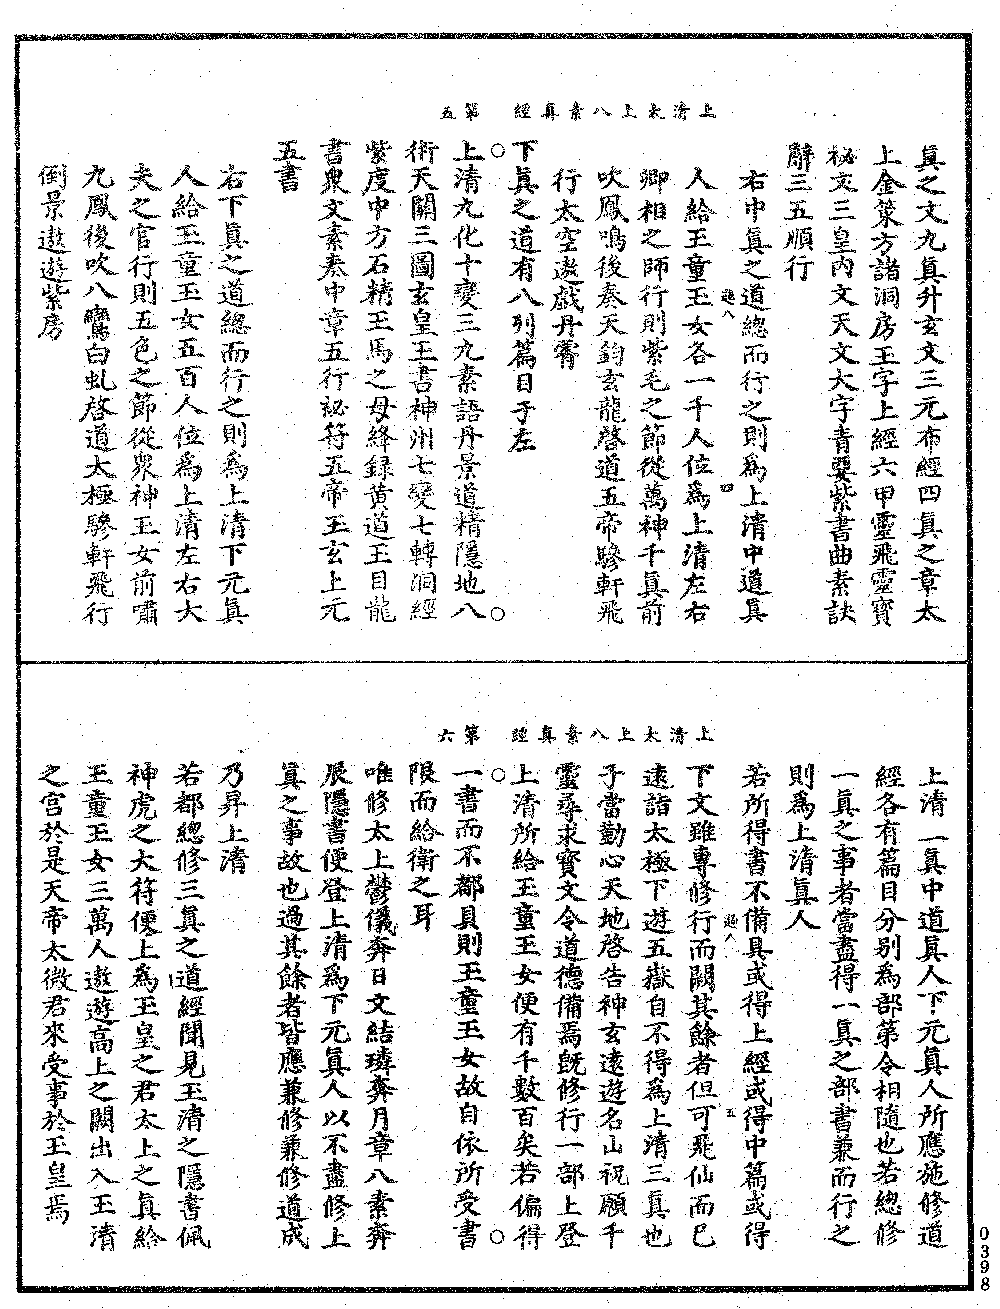 上清太上八素真經　第五
真之文九真升玄文三元布經四真之章太
上金策方諸洞房玉字上經六甲靈飛靈寶
祕文三皇內文天文大字青要紫書曲素訣
辭三五順行
右中真之道總而行之則為上清中道真
人給玉童玉女各一千人位為上清左右
卿相之師行則紫毛之節從萬神千真前
吹鳳鳴後奏天鈞玄龍啓道五帝驂軒飛
行太空遨戲丹霄
下真之道有八列篇目于左
上清九化十變三九素語丹景道精隱地八
術天關三圖玄皇玉書神州七變七轉洞經
紫度中方石精玉馬之母絳録黃道玉目龍
書衆文素奏中章五行祕符五帝玉玄上元
五書
右下真之道總而行之則為上清下元真
人給玉童玉女五百人位為上清左右大
夫之官行則五色之節從衆神玉女前嘯
九鳳後吹八鸞白虬啓道太極驂軒飛行
倒景遨遊紫房
上清太上八素真經　第六
上清一真中道真人下元真人所應施修道
經各有篇目分別為部第令相隨也若總修
一真之事者當盡得一真之部書兼而行之
則為上清真人
若所得書不備具或得上經或得中篇或得
下文雖專修行而闕其餘者但可飛仙而已
遠詣太極下遊五嶽自不得為上清三真也
子當勤心天地啓告神玄遠遊名山祝願千
靈尋求寶文令道德備焉既修行一部上登
上清所給玉童玉女便有千數百矣若偏得
一書而不都具則玉童玉女故自依所受書
限而給衛之耳
唯修太上鬱儀奔日文結璘奔月章八素奔
辰隱書便登上清為下元真人以不盡修上
真之事故也過其餘者皆應兼修兼修道成
乃昇上清
若都總修三真之道經聞見玉清之隱書佩
神虎之大符僊上為玉皇之君太上之真給
玉童玉女三萬人遨遊高上之闕出入玉清
之宮於是天帝太微君來受事於玉皇焉
0398